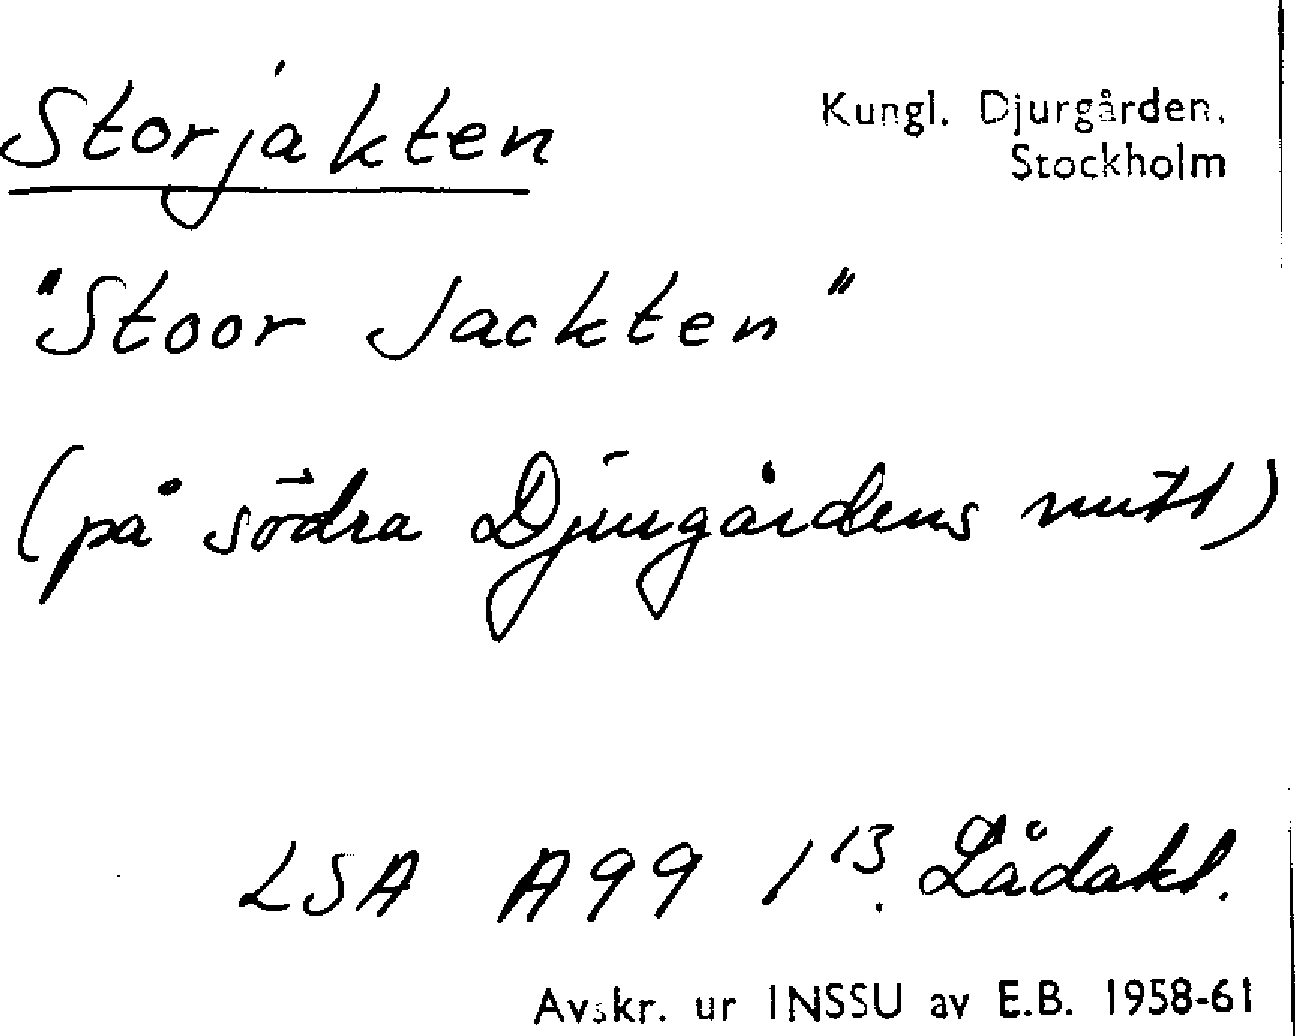 Storjakten
Kungl. Djurgården,
Stockholm
"Stoor Jackten"
(på södra Djurgårdens mitt)
LSA A99 1¹³. Lådakt.
Avskr. ur INSSU av E.B. 1958-61